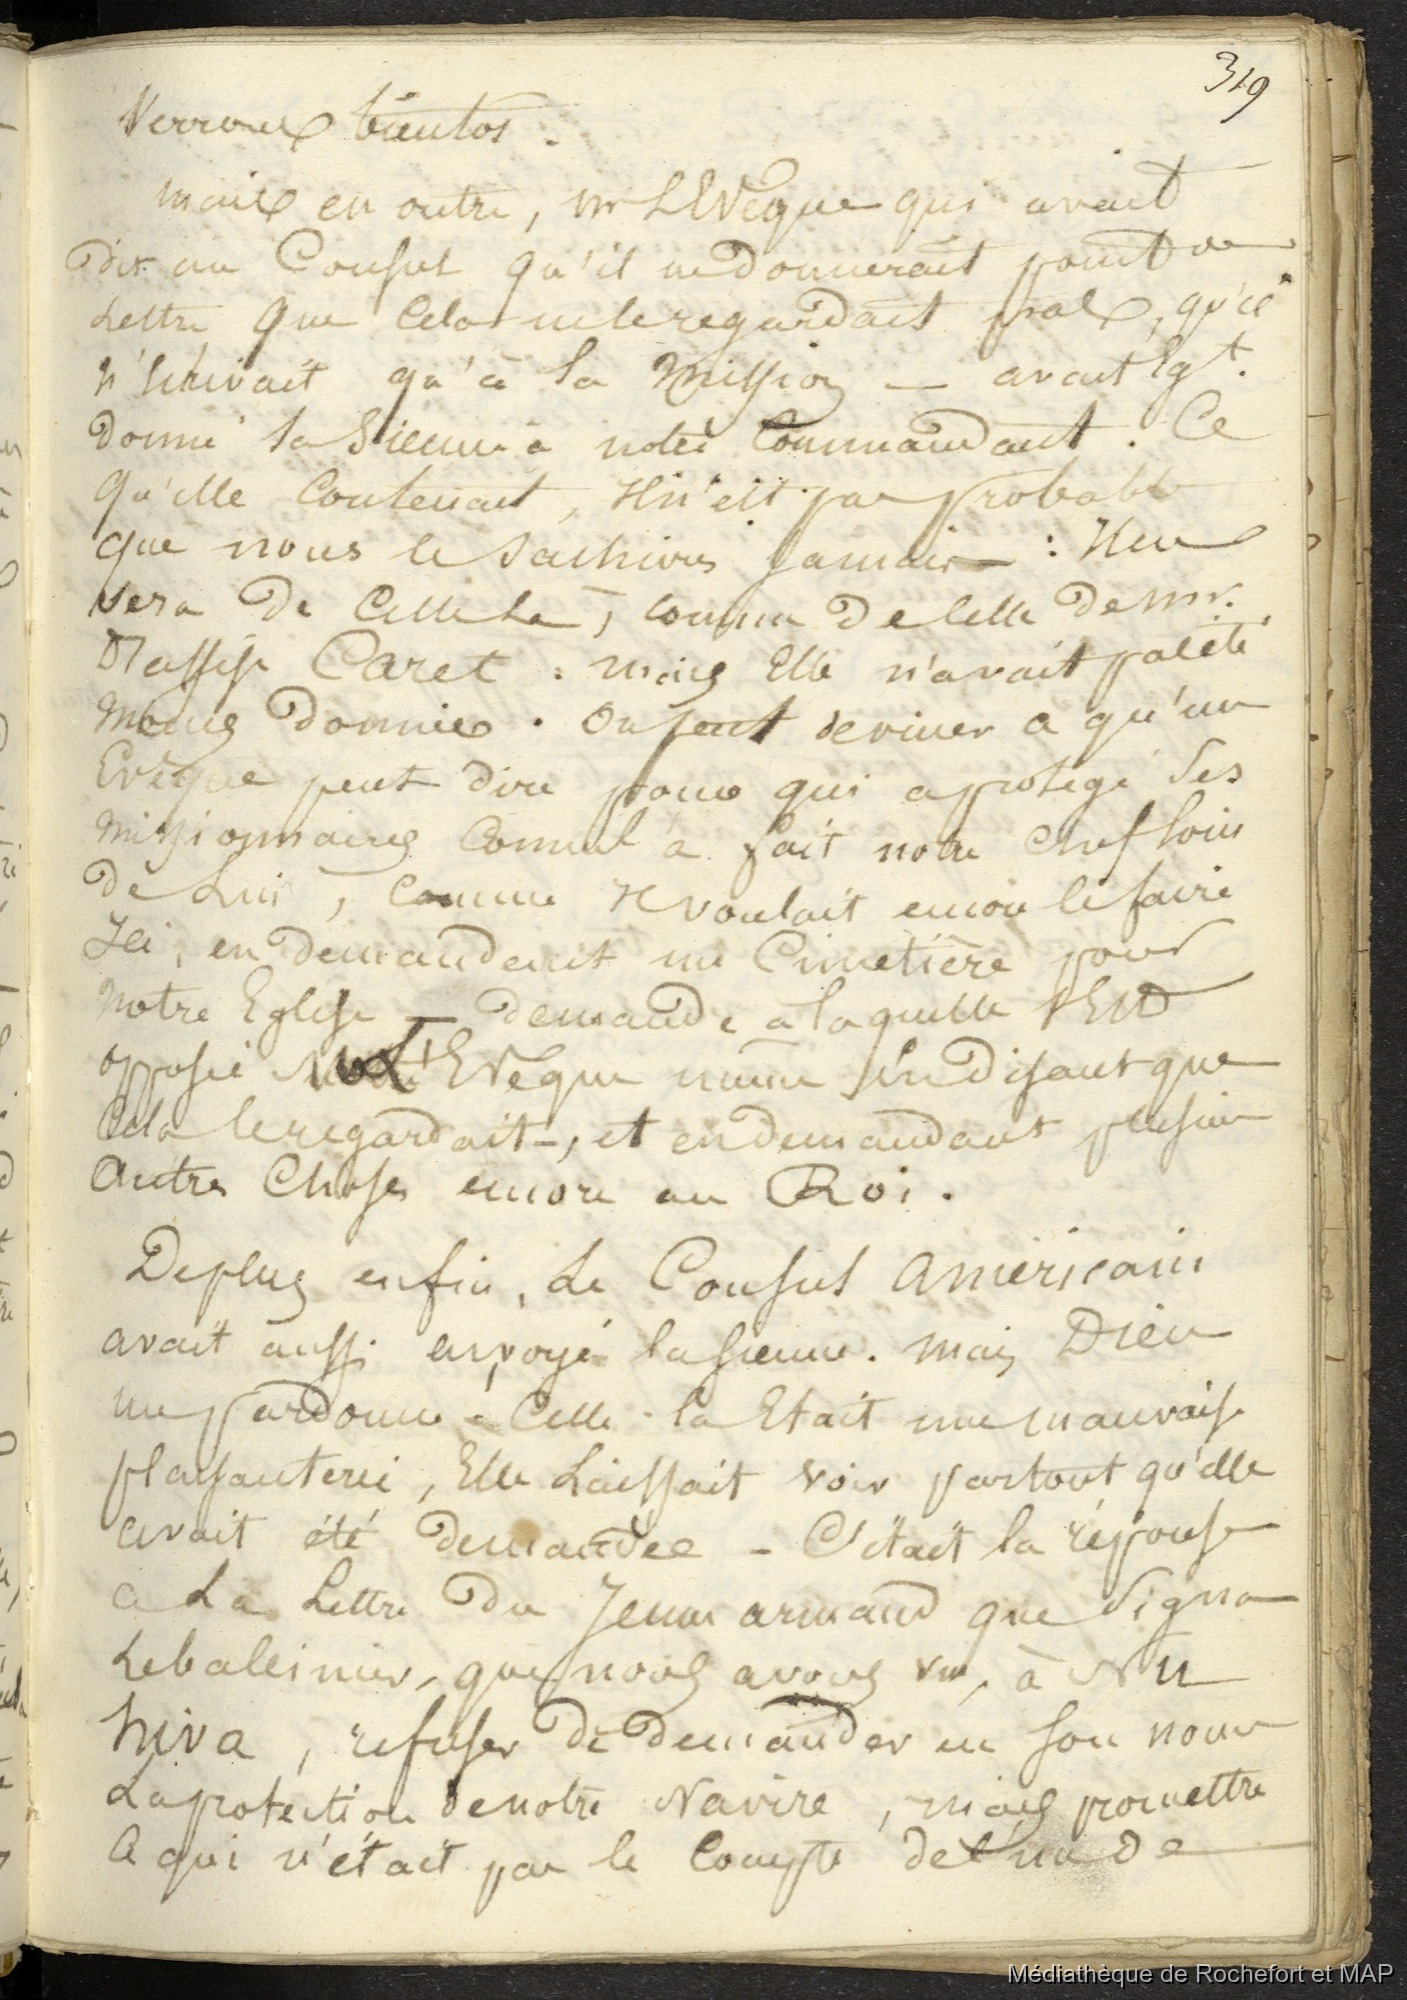 319
Verrons bientos.
mais en outre, mr LEVêque qui avait
dit au Consul qu'il ne donnerait point de
Lettre, que Cela ne leregardait pas, qu'il
n'écrivait qu'à la Mission — avait Egt.
donné la Sienne à notre Commandant. Ce
qu'elle Contenait, Il n'est pas probable
que nous le Sachions jamais : Il en
sera de Celle La, comme de Celle de mr.
Caret : mais Elle n'avait pas été
moins donnée. On peut deviner a qu'un
Evêque peut dire pour qui a protégé Ses
missionnaires Comme l'a fait notre Chef loin
de Lui, Comme Il voulait encore le faire
Ici, en demandant un Cimetière pour
notre Eglise — demande a laquelle s'Est
opposé l'EVêque même En disant que
Cela leregardait, et en demandant plusieurs
Autres Choses encore au Roi.
Deplus enfin, Le Consul Américain
avait aussi envoyé la sienne. Mais Dieu
me pardonne - Celle-la Etait une mauvaise
plaisanterie, Elle Laissait voir partout qu'elle
avait été demandée - C'était la réponse
a La Lettre du Jeune armand que Signa
Lebaleinier, que nous avons vu, à Nu
hiva, refuser de demander en son nom
Laprotection denotre Navire, mais promettre
a qui n'était pas le Compte de l'un de
Médiathèque de Rochefort et MAP